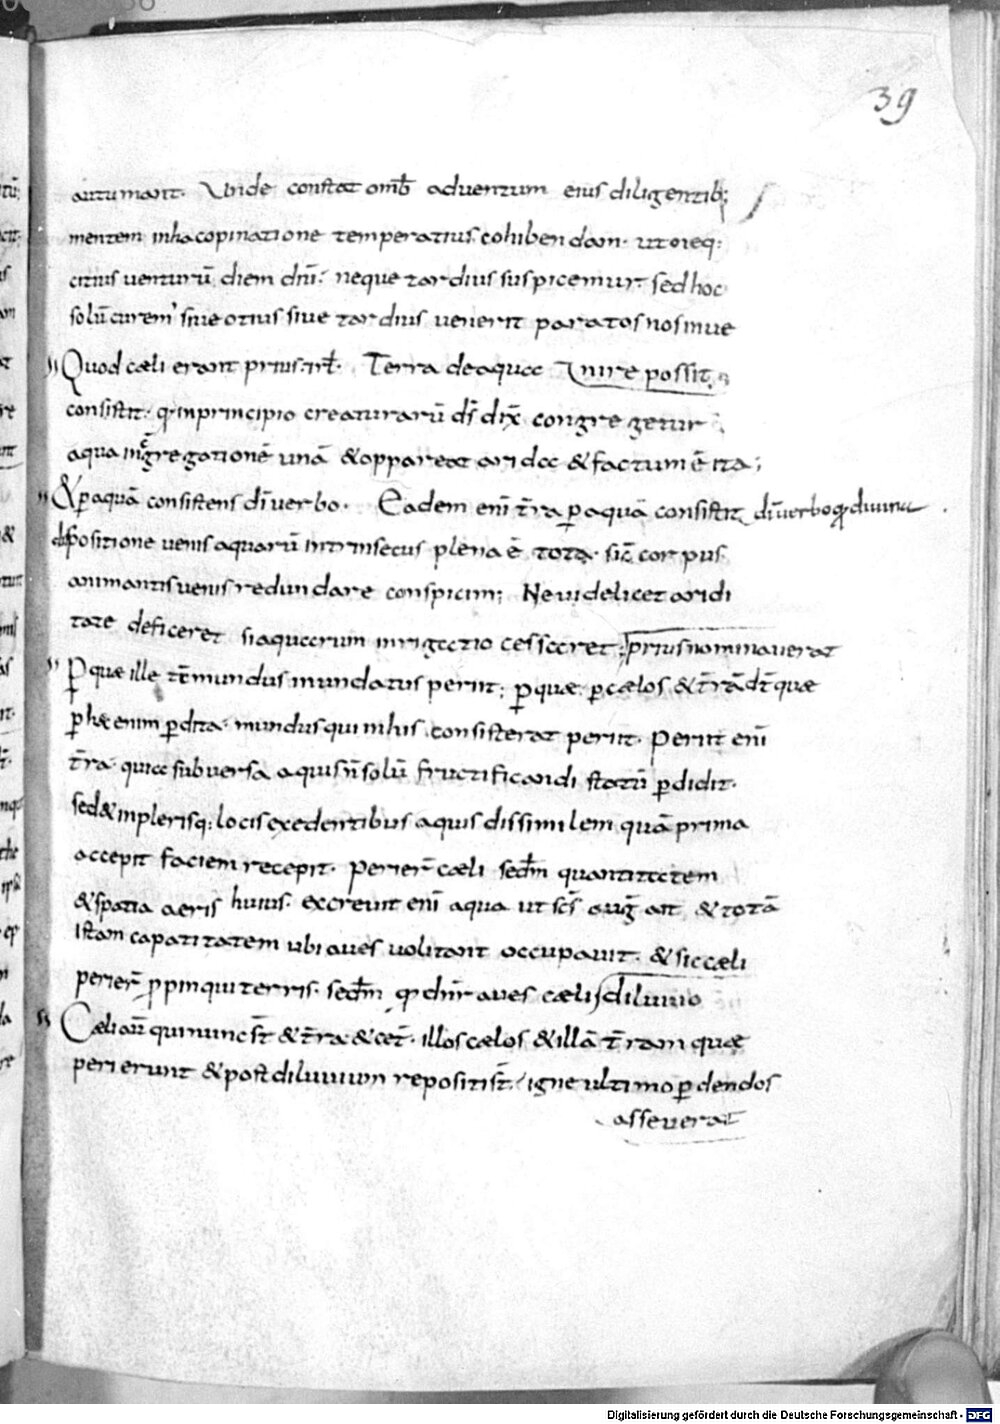 39
autumant. Unde constat omīb adventum eius diligentib;
mentem inhac opinatione temperatius cohibendam. ut neq:
citius venturū diem dn̄i. neque tardius suspicemur sed hoc
solū curem' sive otius sive tardius venerit paratos nos inve
Quod cæli erant prius. irl̄. Terra de aqua nire possit,
consistit. q: in principio creaturarū ds̄ dix̄ congregetur
aqua in c̄gregationē unā & appareat arida & factum ē ita;
& p aquā consistens dī verbo. Eadem enī t̄ra p aquā consistit dī verbo q: divina
dispositione venis aquarū intrinsecus plena ē tota. sic̄ corpus
animantis venis redundare conspicim; Ne videlicet aridi
tate deficeret si aquarum inrigatio cessaret. prius nominaverat
P quæ ille tc̄ mundus inundatus periit; p quæ. p cælos & t̄rā dt̄ quæ
p hæc enim p dita. mundus qui in his consisterat periit. Periit enī
t̄ra. quia subversa aquis n̄ solū fructificandi statū p didit.
sed & in plerisq: locis excedentibus aquis dissimilem quā prima
accepit faciem recepit. Perier̄ cæli sed̄m quantitatem
& spatia aeris huius. excrevit enī aqua ut sc̄s auḡ ait & totā
istam capatitatem ubi aves volitant occupavit. & sic cæli
perier̄ p pinqui terris. sed̄m q: dn̄r aves cæli diluvio
Cæli aū qui nunc st̄ & t̄ra & cet̄. illos cælos & illā t̄ram quæ
perierunt & post diluvium repositi st̄. igne ultimo p dendos
asseverat
Digitalisierung gefördert durch die Deutsche Forschungsgemeinschaft - DFG